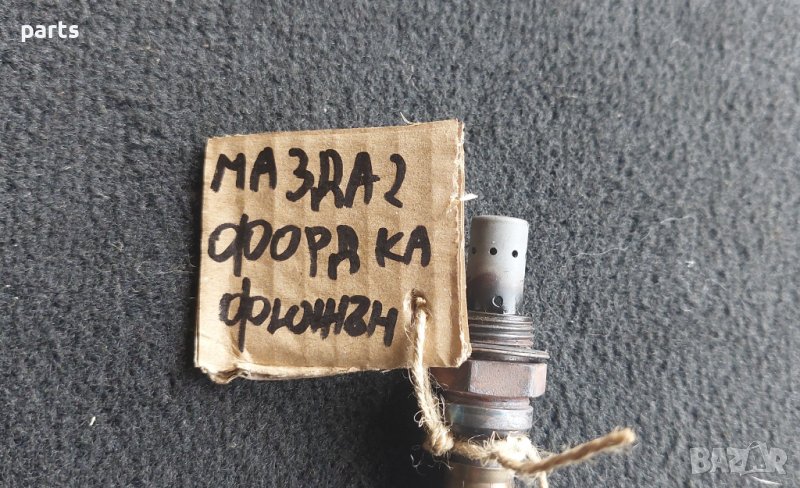 parts
МАЗДА 2
ФОРД КА
ФЮЖЪН
BAZAR